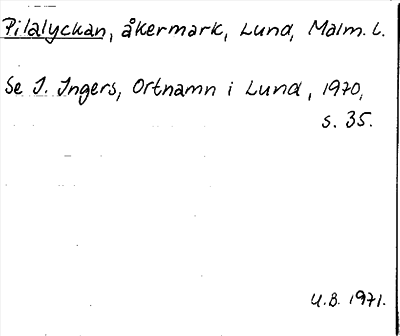 Pilalyckan, åkermark, Lund, Malm. L.
Se I. Ingers, Ortnamn i Lund, 1970,
s. 35.
U.B. 1971.